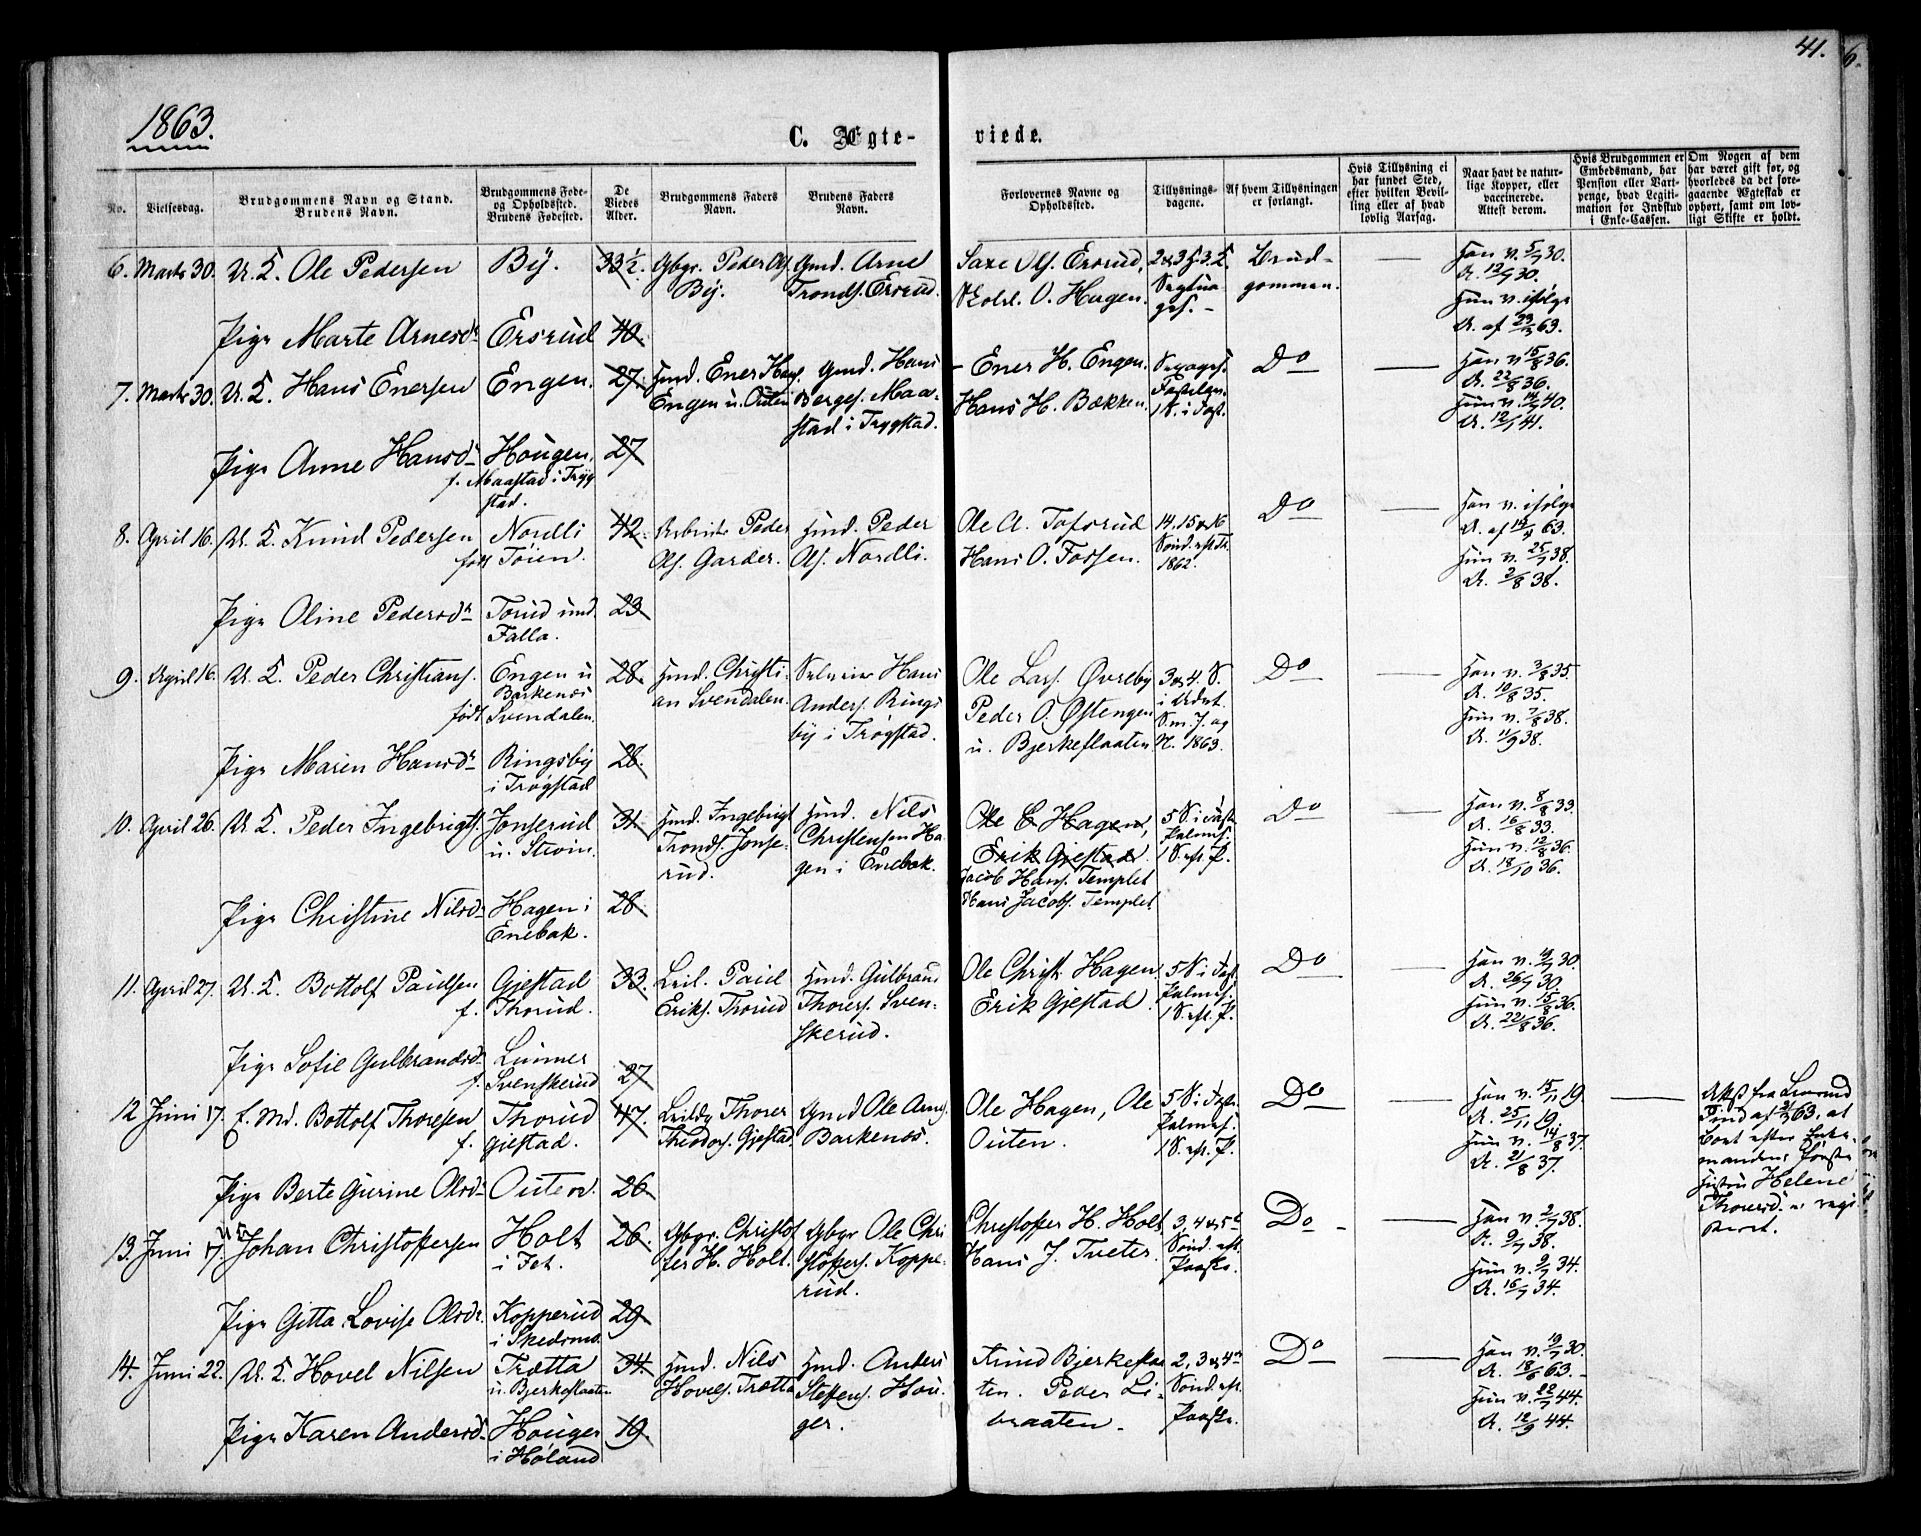 41.
6.
1863.
C. Ægte-
viede.
No.
Vielsesdag.
Brudgommens Navn og Stand.
Brudens Navn.
Brudgommens Føde-
og Opholdssted.
Brudens Fødested.
De
Viedes
Alder.
Brudgommens Faders
Navn.
Brudens Faders
Navn.
Forlovernes Navne og
Opholdssted.
Tillysnings-
dagene.
Af hvem Tillysningen
er forlangt.
Hvis Tillysning ei
har fundet Sted,
efter hvilken Bevil-
ling eller af hvad
lovlig Aarsag.
Naar havt de natur-
lige Kopper, eller
vaccinerede.
Attest derom.
Hvis Brudgommen er
Embedsmand, har
Pension eller Vart-
penge, hvad Legiti-
mation for Indskud
i Enke-Cassen.
Om Nogen af dem
har været gift før, og
hvorledes da det fore-
gaaende Ægteskab er
ophørt, samt om lov-
ligt Skifte er holdt.
6. Marts 30. U. K. Ole Pedersen
By.
33½.
Gbgr. Peder Ols.
By.
Gmd. Arne
Tronds. Ersrud.
Saxe Ols. Ersrud,
O. Hagen.
2 og 3 S.
Brud-
gommen.
Han v. 5/7 30.
A. 12/7 30.
Hun v. ifølge
A. af 23/3 63.
Pige Marte Arnesdr
Ersrud
40.
7. Marts 30. U. K. Hans Enersen
Engen.
27.
Hmd. Ener Hans.
Engen u. Outen
Gmd. Hans
Berges. Maa-
stad i Trygstad.
Ener H. Engen.
Hans H. Bækken.
Sexages.
Fastelavn.
1 S. i Fast.
Do
Han v. 15/8 36.
A. 22/8 36.
Hun v. 14/7 40.
A. 12/7 41.
Pige Anne Hansdr
Hougen,
f. Maastad i Tryg
stad.
27
8. April 16. U. K. Knud Pedersen
Nordli
født Töien.
42.
Arbeider Peder
Ols. Garder.
Hmd. Peder
Ols. Nordli.
Ole A. Toforud
Hans O. Fossen.
14. 15 og 16
Sönd. eft. Tr.
1862.
Do
Han v. ifølge
A. af 14/4 63.
Hun v. 25/7 38.
A. 2/8 38.
Pige Oline Pedersdr
Torud und.
Falla.
23
9. April 16. U. K. Peder Christians.
Engen u
Barkenæs
født Svendalen.
28.
Hmd. Christi-
an Svendalen.
Selveier Hans
Anders. Rings
by i Trøgstad.
Ole Lars. Øvreby
Peder O. Østengen
u. Bjerkeflaaten
3 og 4. S.
i Advt.
S. m. J. og
N. 1863.
Do
Han v. 3/8 35.
A. 10/8 35.
Hun v. 7/8 38.
A. 11/9 38.
Pige Maren Hansdr
Ringsby
i Trøgstad
28.
10. April 26. U. K. Peder Ingebrigts.
Jonsrud
u. Stevin.
31.
Hmd. Ingebrigt
Tronds. Jonse-
rud.
Hmd. Nils
Christensen Ha-
gen i Enebak.
Ole C Hagen,
Erik Gjestad
Jacob Hans. Templet
Hans Jacobs. Templet
5 S. i Faste
Palmes.
1 S. eft. P.
Do
Han v. 8/8 33.
A. 16/8 33.
Hun v. 12/8 36.
A. 18/10 36.
Pige Christine Nilsdr
Hagen i
Enebak.
28.
11. April 27. U. K. Bottolf Paulsen
Gjestad
f. Thorud.
33.
Leil. Paul
Eriks. Thorud
Hmd. Gulbrand
Thores. Sven-
skerud.
Ole Christ. Hagen
Erik Gjestad.
5 S. i Fast.
Palmes.
1 S. eft. P.
Do
Han v. 19/7 30.
A. 26/7 30.
Hun v. 15/8 36.
A. 22/8 36.
Pige Sofie Gulbrandsdr
Lunner
f. Svenskerud
27
12 Juni 17. E. Md. Bottolf Thoresen
Thorud
f. Gjestad.
47.
Leildg Thorer
Theodors. Gjestad.
Gmd Ole Arng.
Barkenæs.
Ole Hagen, Ole
Outen.
5 S. i Faste.
Palmes.
1 S. eft. P.
Do
Han v. 15/11 19
A. 25/11 19.
Hun v. 14/8 37.
A. 21/8 37.
Attest fra
63, at
Boet efter Enke-
mandens første
Hustru Helene
Thoresd. er regi
streret.
Pige Berte Gurine Olsdr
Outen.
26.
13. Juni 17. U. K. Johan Christoffersen
Holt
i Fet.
26.
Gbgr. Christof
fer H. Holt.
Gbgr Ole Chri
stoffers. Koppe-
rud.
Christoffer H. Holt
Hans J. Tveter.
3, 4 og 5te
Sönd. eft.
Paaske.
Do
Han v. 2/7 38.
A. 9/7 38.
Hun v. 9/7 34.
A. 16/7 34.
Pige Gitta Lovise Olsdr.
Kopperud
i Skedsmo
29
14. Juni 22. U. K. Hovel Nilsen
Trætta
u. Bjerkeflaaten
34.
Hmd. Nils
Hovels. Trætta
Hmd. Anders
Steffens. Hou-
ger.
Knud Bjerkeflaa
ten. Peder Li-
braaten.
2, 3 og 4de
Sönd. eft.
Paaske.
Do
Han v. 19/7 30.
A. 18/6 63.
Hun v. 22/7 44.
A. 12/9 44.
Pige Karen Andersdr
Houger
i Høland
19.